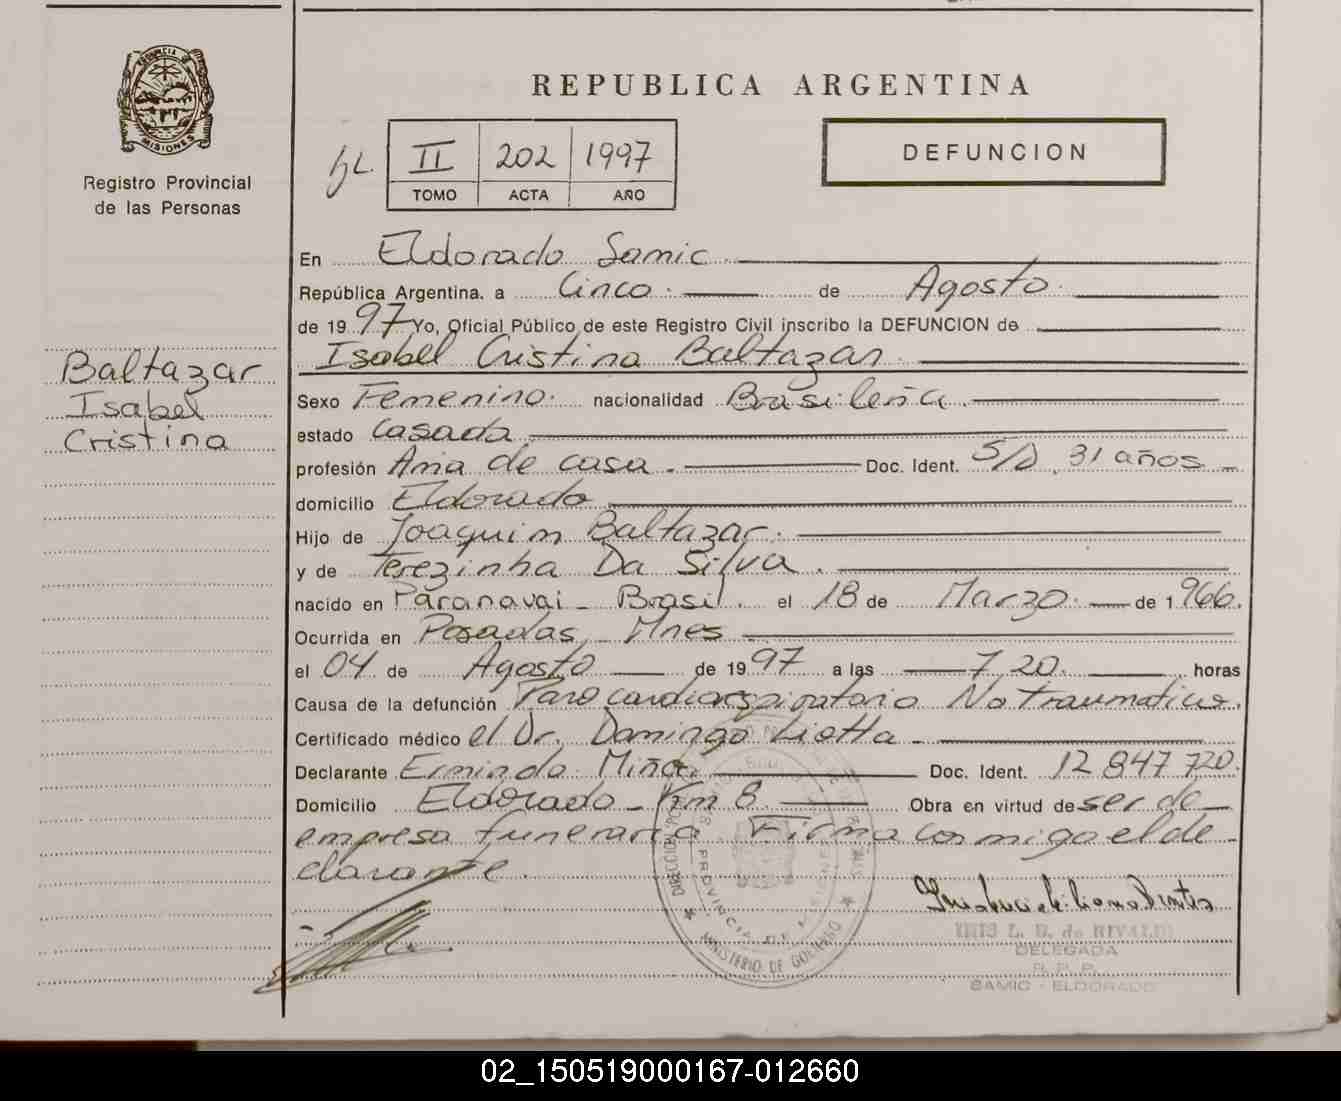 REPUBLICA ARGENTINA
PROVINCIA DE
MISIONES
Registro Provincial
de las Personas
II 202 1997
TOMO ACTA AÑO
DEFUNCION
En Eldorado Samic
República Argentina. a Cinco. de Agosto.
de 19 97 Yo, Oficial Público de este Registro Civil inscribo la DEFUNCION de
Isabel Cristina Baltazar.
Baltazar
Isabel
Cristina
Sexo Femenino. nacionalidad Brasileña.
estado Casada
profesión Ama de casa. Doc. Ident. S/D. 31 años
domicilio Eldorado
Hijo de Joaquim Baltazar.
y de Terezinha Da Silva.
nacido en Paranavai - Brasil. el 18 de Marzo. de 1 966.
Ocurrida en Posadas, Mnes
el 04 de Agosto de 19 97 a las 7,20. horas
Causa de la defunción Paro cardiorespiratorio No traumatico.
Certificado médico el Dr. Domingo Liotta
Declarante Erminda Miña. Doc. Ident. 12 847 720.
Domicilio Eldorado - Km 8 Obra en virtud de ser de
empresa funeraria. Firma conmigo el de-
clarante.
PROVINCIA DE MISIONES
MINISTERIO DE GOBIERNO
IRIS L. D. de RIVALDI
DELEGADA
R. P. P.
SAMIC - ELDORADO
02_150519000167-012660